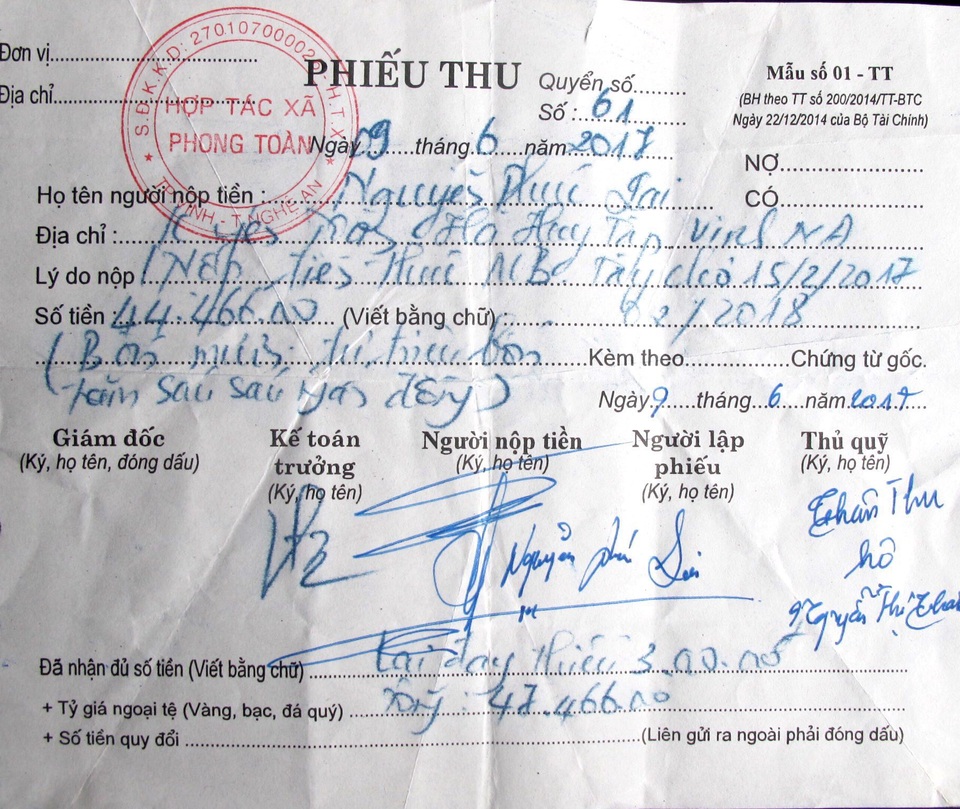 Đơn vị
Địa chỉ
S.Đ.K.K.D: 2701070000 H.T.X
HỢP TÁC XÃ
PHONG TOÀN
VINH - T. NGHỆ AN
PHIẾU THU
Quyển số
Số : 61
Ngày 09 tháng 6 năm 2017
Mẫu số 01 - TT
(BH theo TT số 200/2014/TT-BTC
Ngày 22/12/2014 của Bộ Tài Chính)
NỢ
CÓ
Họ tên người nộp tiền : Nguyễn
Địa chỉ : Hà Huy Tập Vinh NA
Lý do nộp Nộp tiền 15/2/2017
Số tiền 44.466.00 (Viết bằng chữ) : 2/2018
(Bốn mươi tư triệu bốn Kèm theo Chứng từ gốc.
trăm sáu sáu ngàn đồng)
Ngày 9 tháng 6 năm 2017
Giám đốc
(Ký, họ tên, đóng dấu)
Kế toán trưởng
(Ký, họ tên)
Người nộp tiền
(Ký, họ tên)
Người lập phiếu
(Ký, họ tên)
Thủ quỹ
(Ký, họ tên)
Nguyễn
Thu
hộ
Nguyễn Thị
Đã nhận đủ số tiền (Viết bằng chữ) thiếu 3.00.00
+ Tỷ giá ngoại tệ (Vàng, bạc, đá quý) 47.466.00
+ Số tiền quy đổi (Liên gửi ra ngoài phải đóng dấu)